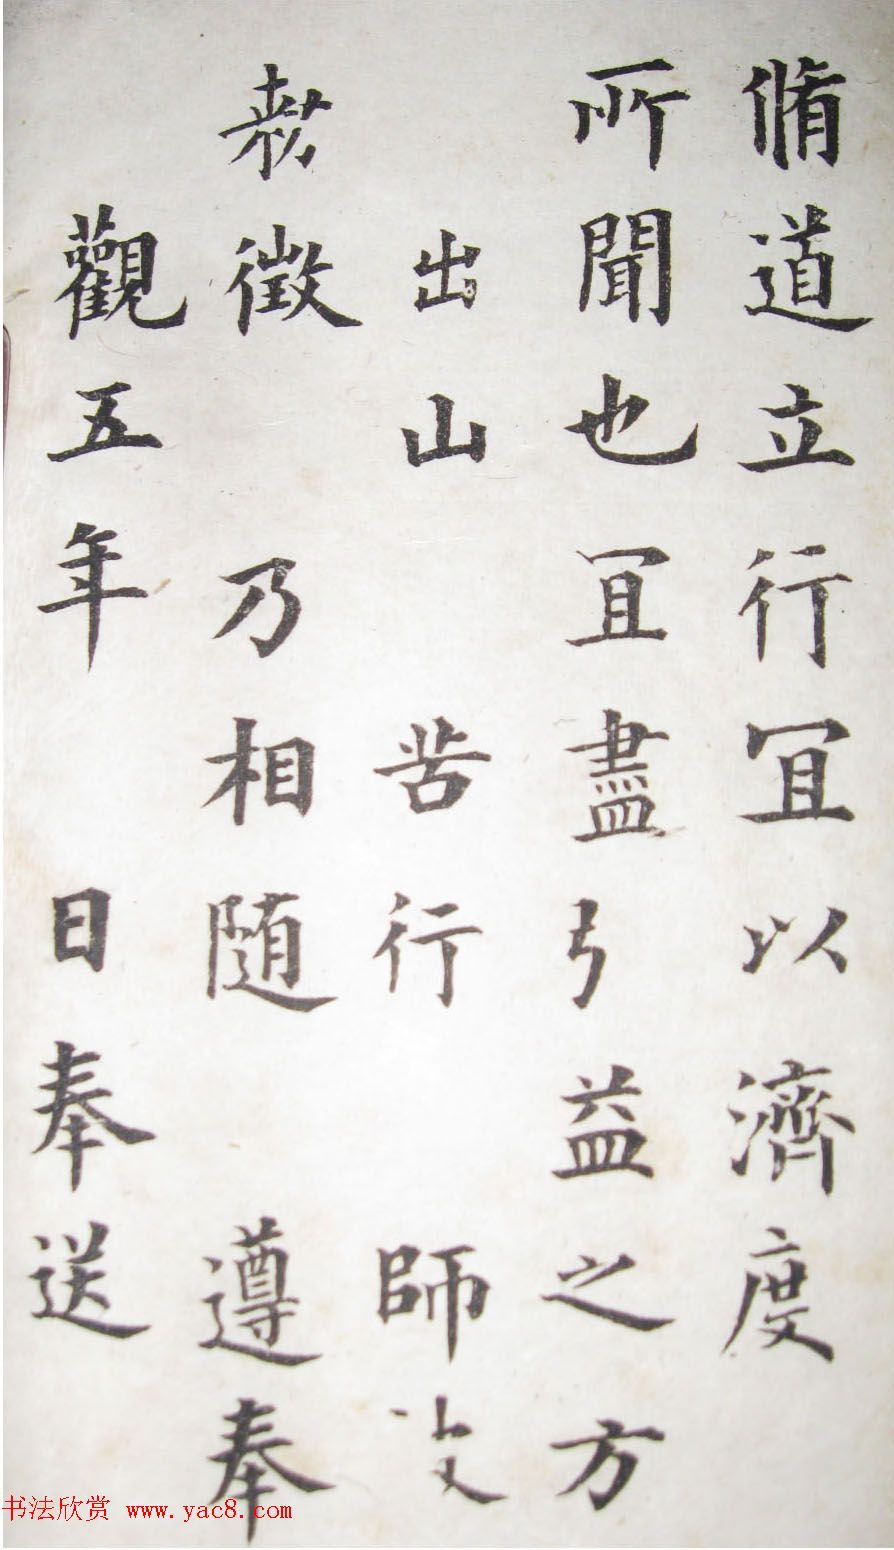 脩道立行冝以濟度
所聞也冝盡弓益之方
出山 苦行 師
勑徵 乃相随 遵奉
觀五年 日奉送
书法欣赏 www.yac8.com